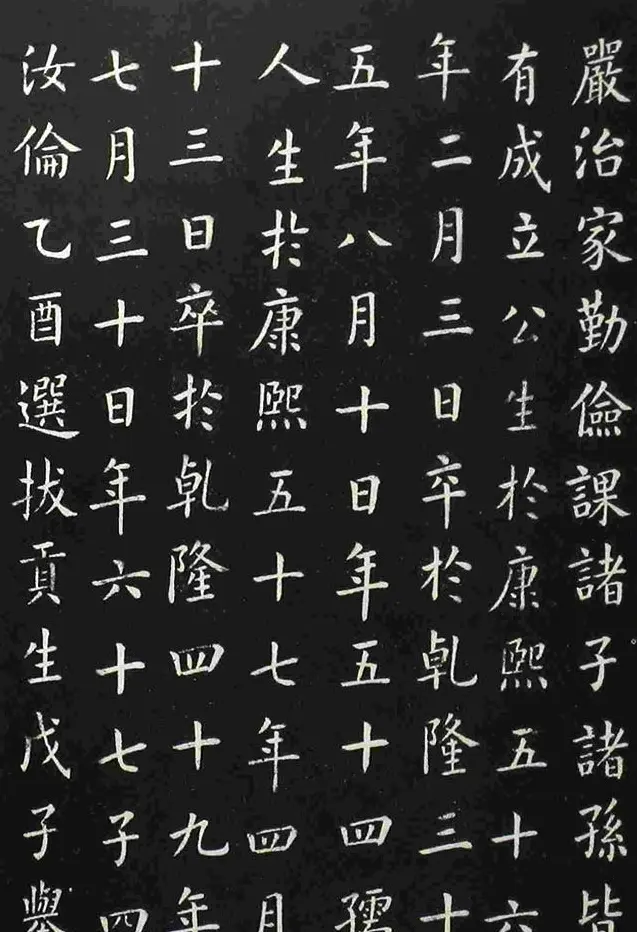 嚴治家勤儉課諸子諸孫皆
有成立公生於康熙五十六
年二月三日卒於乹隆三十
五年八月十日年五十四孺
人生於康熙五十七年四月
十三日卒於乹隆四十九年
七月三十日年六十七子四
汝倫乙酉選拔貢生戊子舉